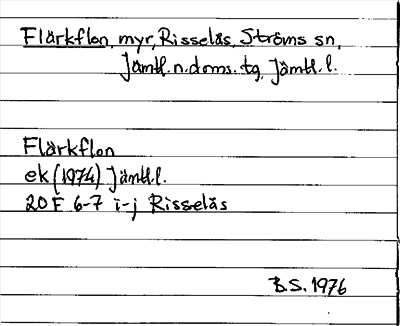 Flärkflon, myr, Risselås, Ströms sn,
Jämtl. n. doms. tg, Jämtl. l.
Flärkflon
ek (1974) Jämtl. l.
20 F 6-7 i-j Risselås
B.S. 1976